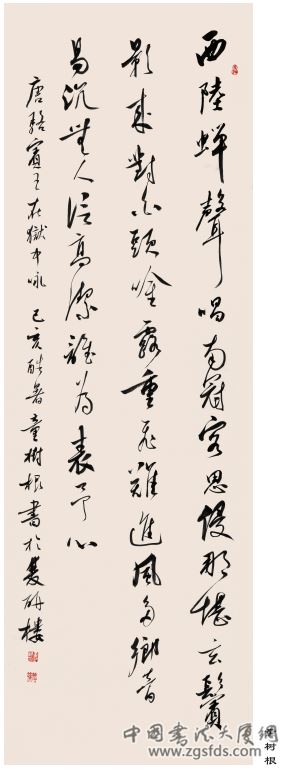 西陸蝉聲唱南冠客思侵那堪玄鬢
影來對白頭吟露重飛難進風多響
易沉無人信高潔誰為表予心
唐駱賓王在獄中詠 己亥酷暑童樹根書於樓
童树根
中国书法大厦网
www.zgsfds.com